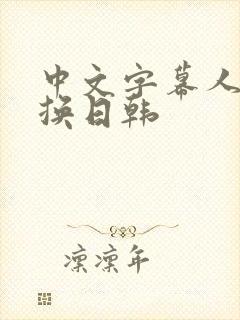 中文字幕人
换日韩
凛凛年